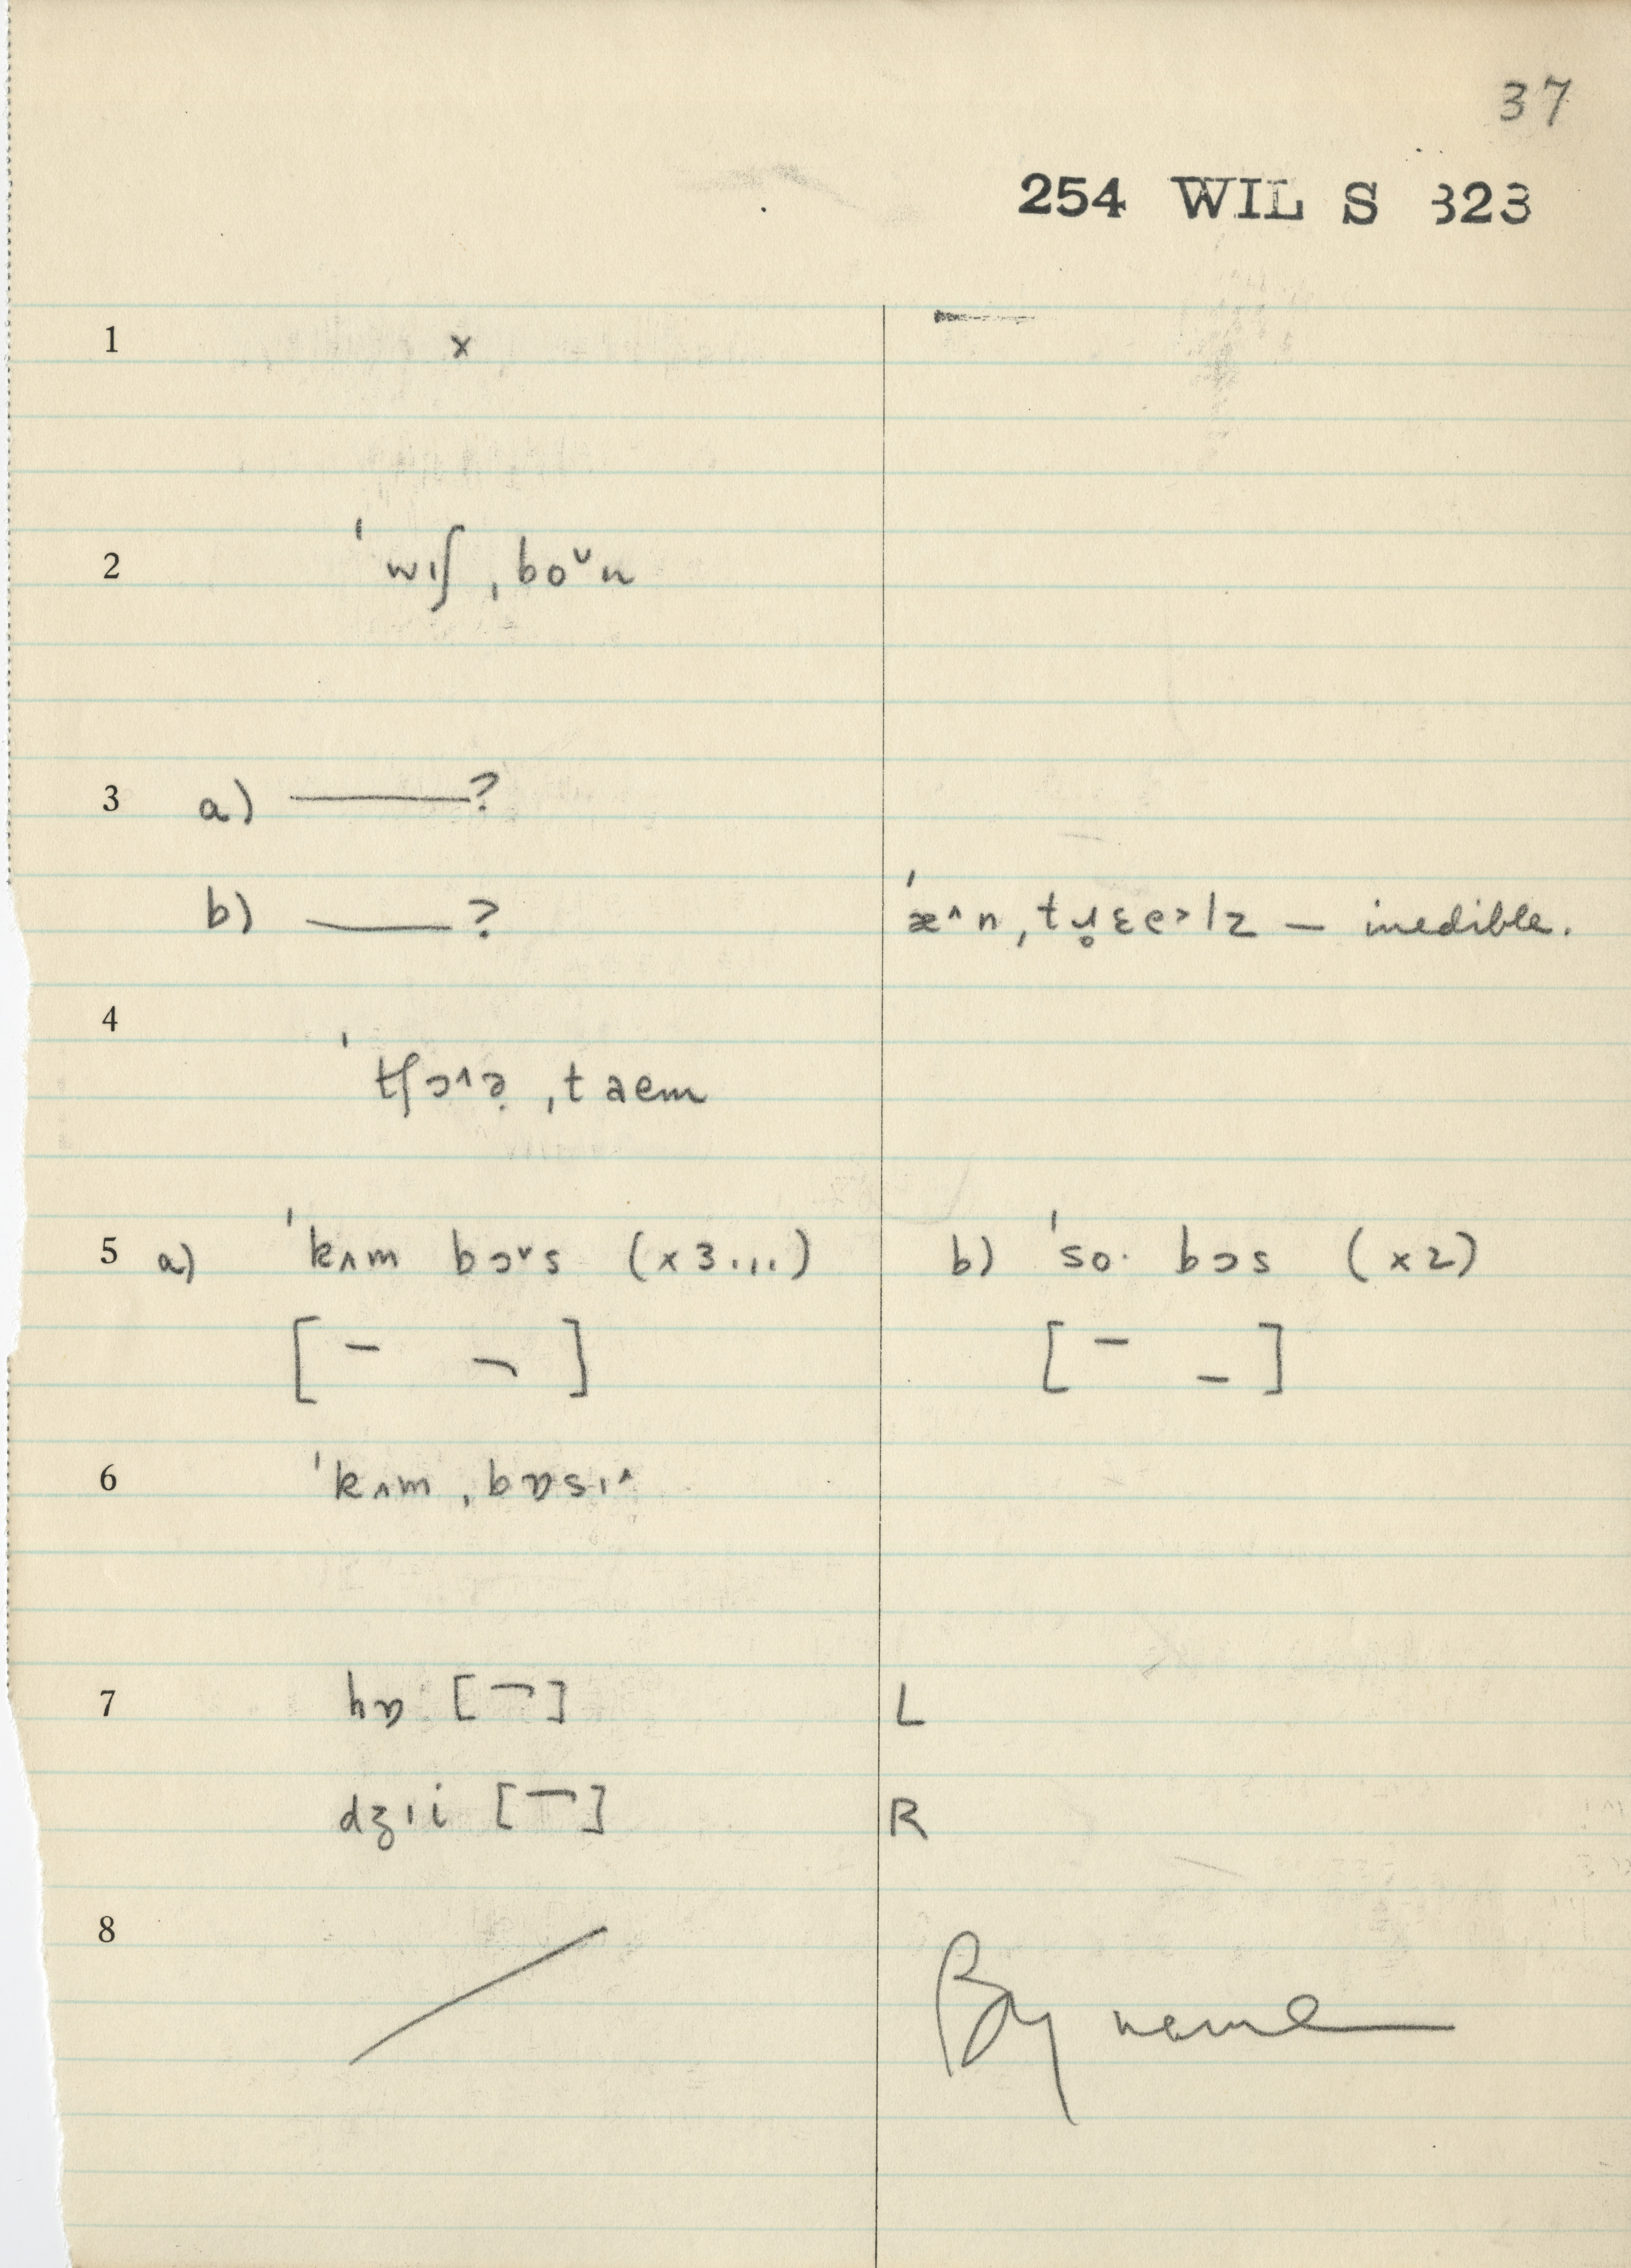 37
254 WIL S 323
1 x
2 ˈwɪʃ ˌboˇn
3 a) ——?
b) ——? ˈæ^n ˌtɹ̥ɛe˃lz — inedible.
4 ˈtʃɔ^ə̣ ˌtaem
5 a) ˈkʌm bɔˇs (x3...) b) ˈso· bɔs (x2)
6 ˈkʌm ˌbɒsɪ^
7 hɒ [¬] L
dʒɪi [¬] R
8 By name